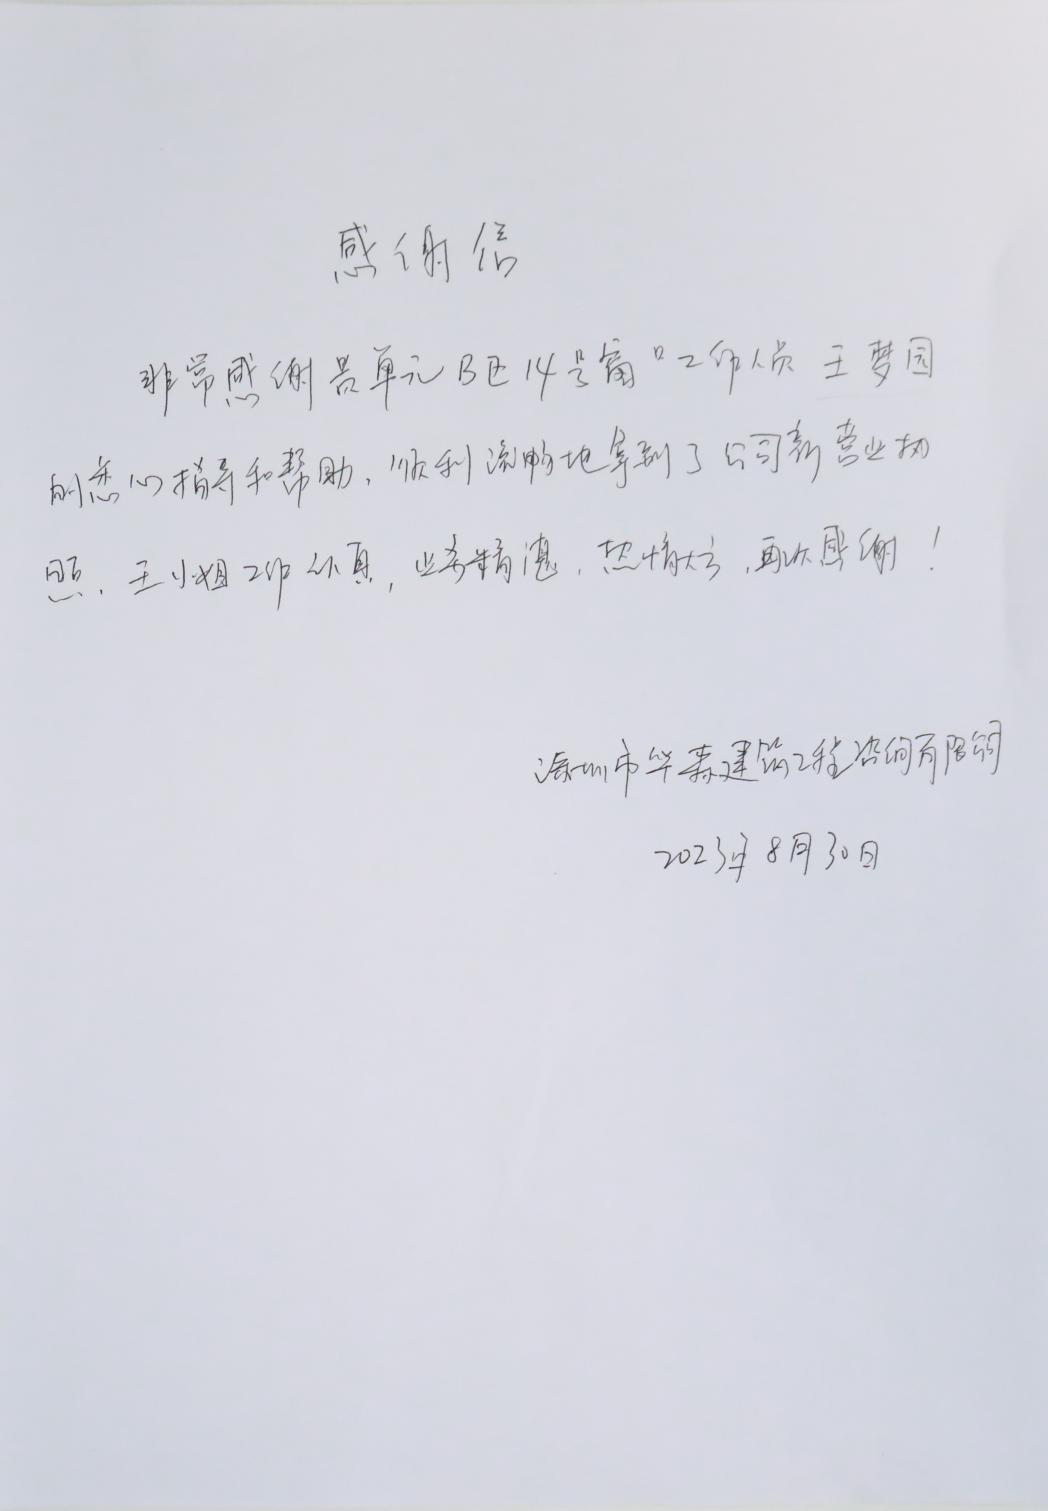 感谢信
非常感谢贵单元B区14号窗口工作人员王梦园
的悉心指导和帮助,顺利流畅地拿到了公司新营业执
照,王小姐工作认真,业务精湛,热情大方,再次感谢!
深圳市华森建筑工程咨询有限公司
2023年8月30日